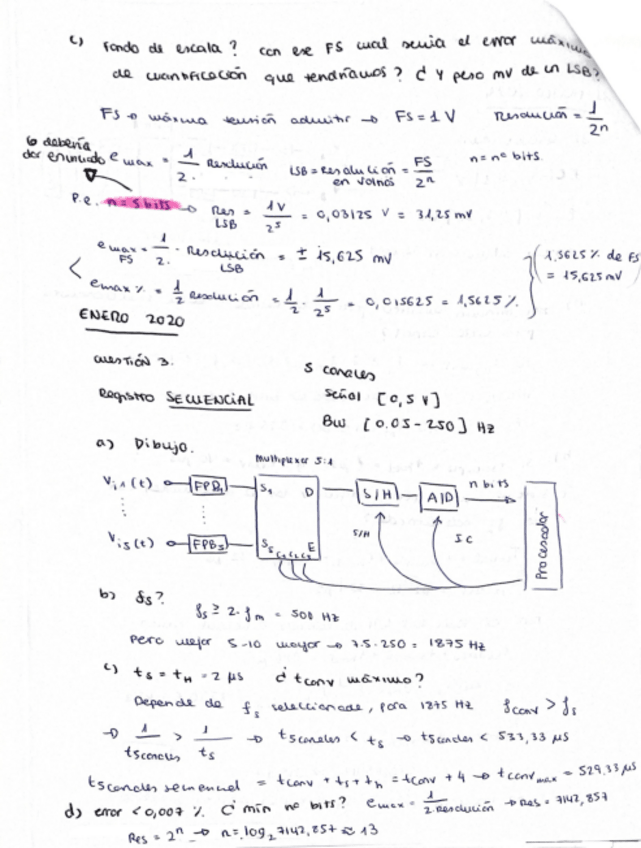 c) Fondo de escala? con ese FS cual sería el error máximo
de cuantificación que tendríamos? d Y peso mV de un LSB?
FS → máxima tensión admitir → FS = 1 V Resolución = 1/2^n
lo debería
dar enunciado
e max = 1/2 · Resolución LSB = Resolución en voltios = FS/2^n n = nº bits
P.e. n = 5 bits → Res LSB = 1V/2^5 = 0,03125 V = 31,25 mV
e max FS = 1/2 · Resolución LSB = ± 15,625 mV
e max % = 1/2 Resolución = 1/2 · 1/2^5 = 0,015625 = 1,5625 %
1,5625 % de FS
= 15,625 mV
ENERO 2020
cuestión 3.
Registro SECUENCIAL
5 canales
Señal [0,5 V]
BW [0.05 - 250] Hz
a) Dibujo.
Multiplexer 5:1
Vi1(t) FPB1 S1 D S/H A/D n bits
Vi5(t) FPB5 S5 C1 C2 C3 E S/H SC Procesador
b) fs?
fs ≥ 2·fm = 500 Hz
Pero mejor 5-10 mayor → 7.5·250 = 1875 Hz
c) ts = tH = 2 μs d tconv máximo?
Depende de fs seleccionada, para 1875 Hz fconv > fs
→ 1/t5canales > 1/ts → t5canales < ts → t5canales < 533,33 μs
t5canales secuencial = tconv + ts + th = tconv + 4 → tconv max = 529,33 μs
d) error < 0,007 % d mín nº bits? e max = 1/2 Resolución → Res = 7142,857
Res = 2^n → n = log2 7142,857 ≈ 13